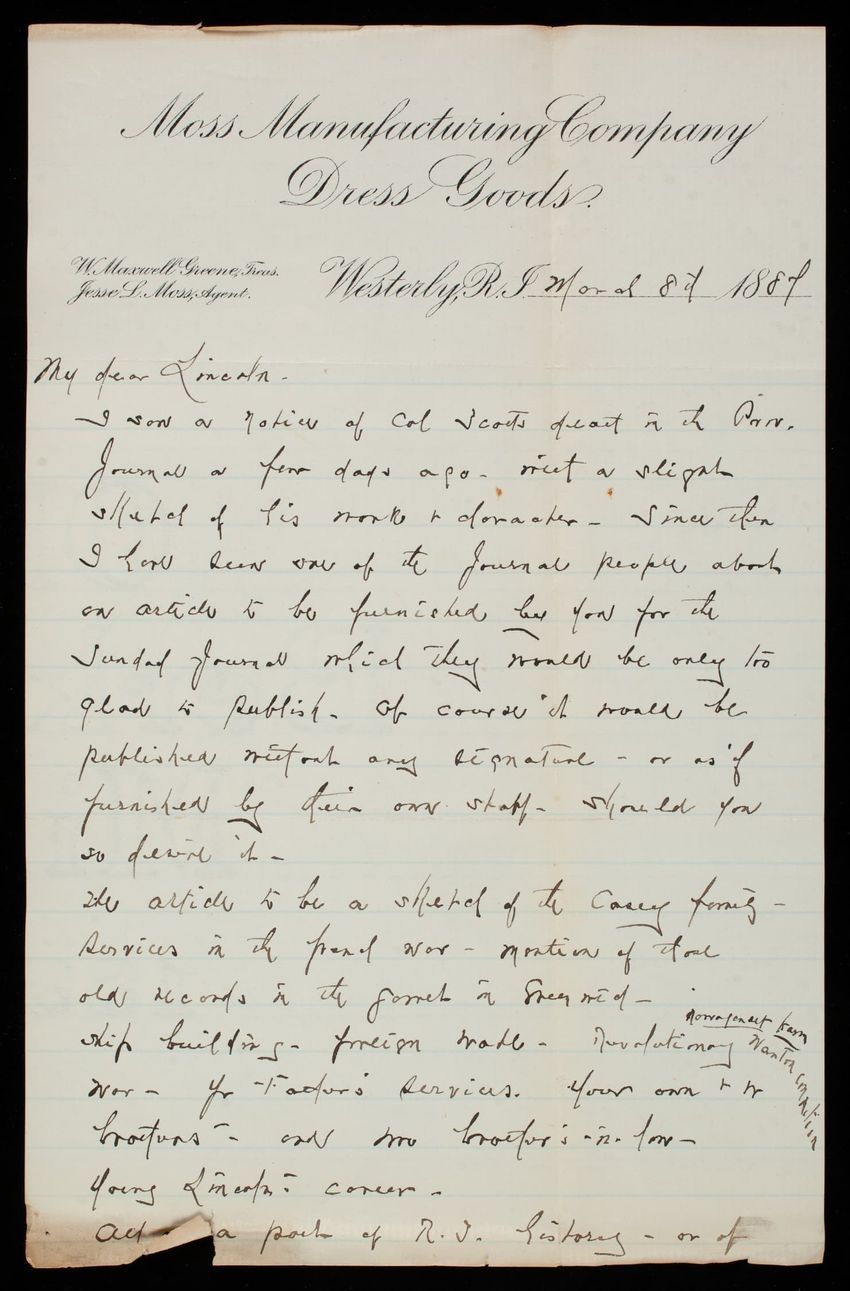 Moss Manufacturing Company
Dress Goods.
W. Maxwell Greene, Treas.
Jesse L. Moss, Agent.
Westerly, R. I. March 8th 1887
My dear Lincoln -
I saw a notice of Col Scotts death in the Prov.
Journal a few days ago - with a slight
sketch of his work & character - Since then
I have seen one of the Journal people about
an article to be furnished by you for the
Sunday Journal which they would be only too
glad to publish - Of course it would be
published without any signature - or as if
furnished by their own staff - Should you
so desire it -
The article to be a sketch of the Casey family -
Services in the french war - mention of those
old records in the garret in Greenwich -
Narragansett farm
ship building - foreign trade - Revolutionary
Wanton
war - Yr Father's services. Your own & yr
brothers - and two brother's-in-law -
Young Lincoln's career -
a part of R. I. history - or of